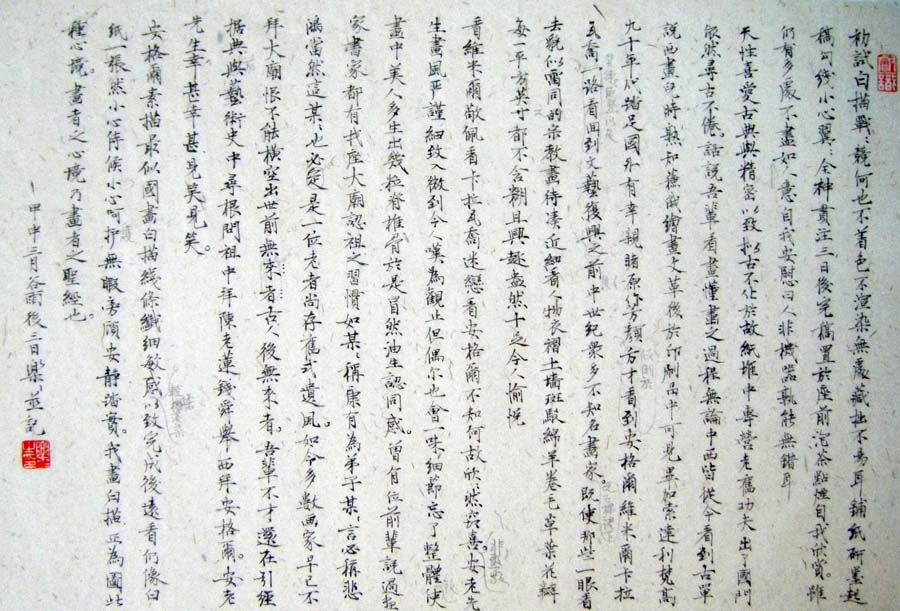 初試白描戰戰兢兢何也不着色不渲染無處藏拙不易耳鋪紙研墨起
稿勾綫小心翼翼全神貫注三日後完稿置於座前沏茶點煙自我欣賞雖
仍有多處不盡如人意自我安慰曰人非機器孰能無錯耳
天性喜愛古典與精密以致拟古不化於故紙堆中專營老舊功夫出了國門
依然尋古不倦話說吾輩看畫懂畫之過程無論中西皆從今看到古單
說西畫兒時熟知蘇俄繪畫文革後於印刷品中可見畢加索達利梵高
九十年代踏足國外有幸親睹原作芳顏方才看到安格爾維米爾卡拉
瓦喬一路看回到文藝復興之前中世紀衆多不知名畫家既使那些一眼看
去貌似雷同的宗教畫待湊近細看人物衣褶土墻斑駁綿羊卷毛草葉花瓣
每一平方英寸都不含糊且興趣盎然十之令人愉悅
看維米爾敬佩看卡拉瓦喬迷戀看安格爾不知何故欣然竊喜。安老先
生畫風嚴謹細致入微到令人嘆為觀止但偶尔也會一味細節忘了整體使
畫中美人多生出幾粒脊椎骨於是冒然油生認同感。曾有位前輩說過每
家書家都有找座大廟認祖之習慣如某某稱康有為弟子某某言必稱悲
鴻當然這某某也必定是一位老者尚存舊式遺風。如今多數画家早已不
拜大廟恨不能橫空出世前無來者古人後無來者。吾輩不才還在引經
据典與藝術史中尋根問祖中拜陳老蓮錢舜舉西拜安格爾。安老
先生幸甚幸甚見笑見笑。
安格爾素描最似國畫白描綫條纖細敏感以致完成後遠看仍像白
紙一張然小心侍候小心呵护無暇旁顧安靜踏實。我畫白描正為圖此
種心境。畫者之心境乃畫者之聖經也。
甲申三月谷雨後三日樂樂並記